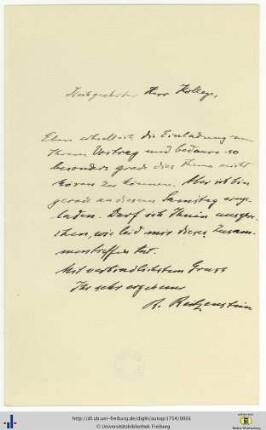 Hochgeehrter Herr Kollege,
Eben erhielt ich die Einladung zu
Ihrem Vortrag und bedaure so
besonders gerade dies Thema nicht
hören zu können. Aber ich bin
gerade an diesem Samstag eingeladen.
Darf ich Ihnen aussprechen,
wie leid mir dieses Zusammentreffen
tut.
Mit verbindlichstem Gruss
Ihr sehr ergebener
R. Reitzenstein
http://dl.ub.uni-freiburg.de/diglit/autogr1754/0001
© Universitätsbibliothek Freiburg